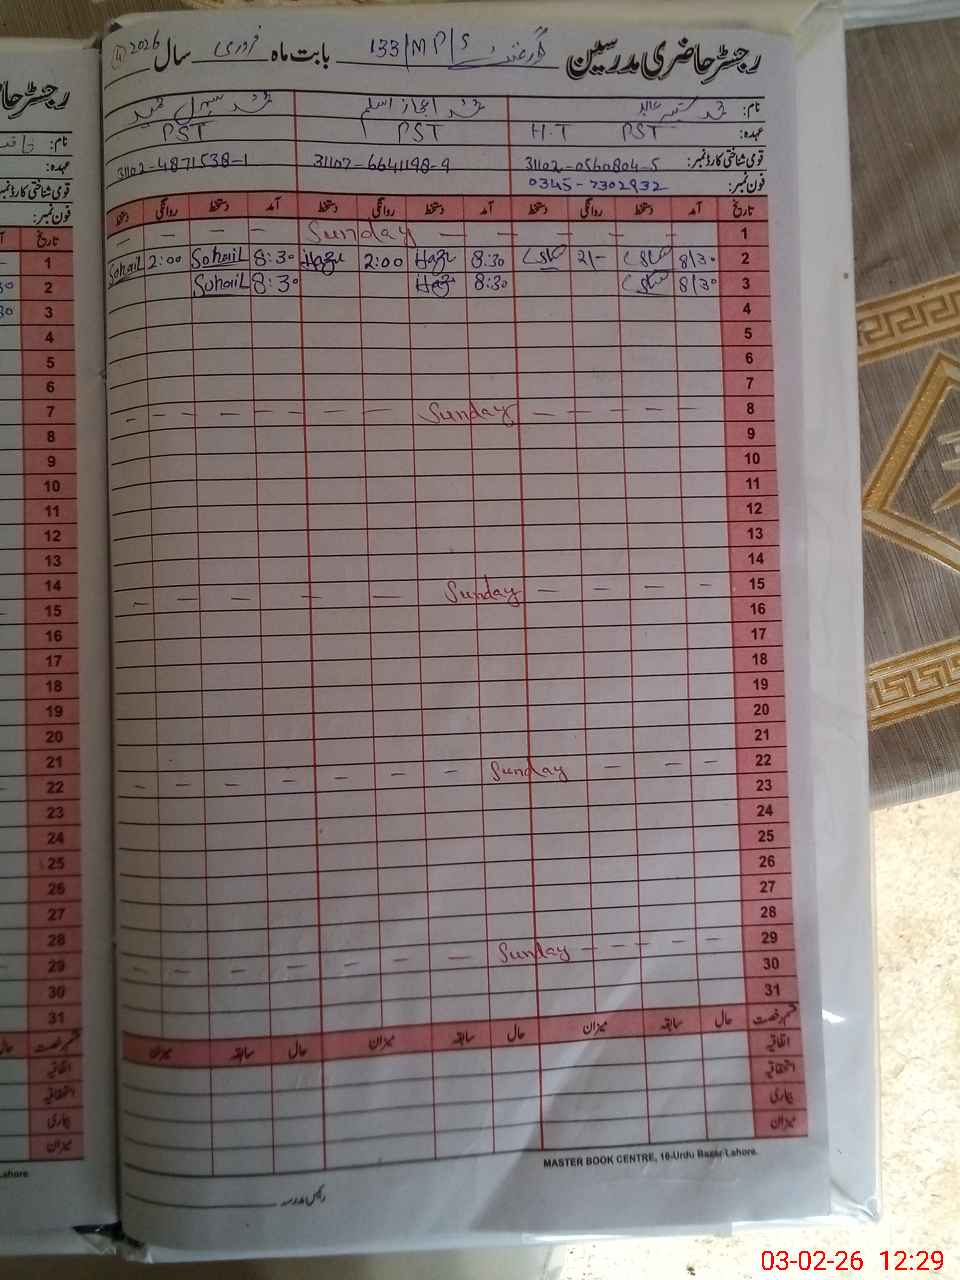 رجسٹر حاضری مدرسین گورنمنٹ 133/M P/S بابت ماہ فروری سال 2026 (4)
نام: محمد اعجاز اسلم محمد سہیل
عہدہ: PST H.T PST PST
قومی شناختی کارڈ نمبر: 31102-0560804-5 31102-6641198-9 31102-4871538-1
فون نمبر: 0345-7302932
تاریخ آمد دستخط روانگی دستخط آمد دستخط روانگی دستخط آمد دستخط روانگی دستخط
1 — — — — Sunday — — — —
2 8/30 2/- 8:30 2:00 8:30 Sohail 2:00 Sohail
3 8/30 8:30 8:30 Suhail
4
5
6
7
8 — — — — Sunday — — — — — —
9
10
11
12
13
14
15 — — — — Sunday — — — — —
16
17
18
19
20
21
22 — — — Sunday — — — — — —
23
24
25
26
27
28
29 — — — — — Sunday — — — — — — —
30
31
قسم رخصت حال سابقہ میزان حال سابقہ میزان حال سابقہ میزان
اتفاقیہ
استحقاقیہ
بیماری
میزان
MASTER BOOK CENTRE, 16-Urdu Bazar Lahore.
رئیس مدرسہ
رجسٹر حا
نام:
عہدہ:
قومی شناختی کارڈ نمبر
فون نمبر:
تاریخ
1
2
3
4
5
6
7
8
9
10
11
12
13
14
15
16
17
18
19
20
21
22
23
24
25
26
27
28
29
30
31
قسم رخصت حال
اتفاقیہ
استحقاقیہ
بیماری
میزان
Lahore.
03-02-26 12:29